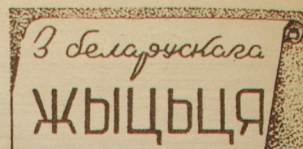 З беларускага
ЖЫЦЬЦЯ